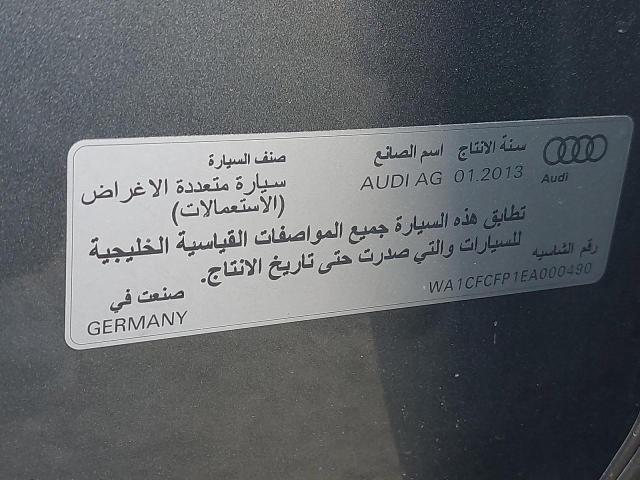 سنة الانتاج اسم الصانع صنف السيارة
Audi
AUDI AG 01.2013
سيارة متعددة الاغراض
(الاستعمالات)
تطابق هذه السيارة جميع المواصفات القياسية الخليجية
للسيارات والتي صدرت حتى تاريخ الانتاج.
رقم الشاسيه
WA1CFCFP1EA000490
صنعت في
GERMANY